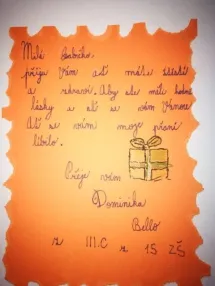 Milá
přeju Vám ať máte štěstí
a zdraví. Aby ste měli hodně
lásky a ať se vám Vánoce
Ať se vám moje přání
líbilo.
Přeje vám
Dominika
Bello
z III.C z 15 ZŠ